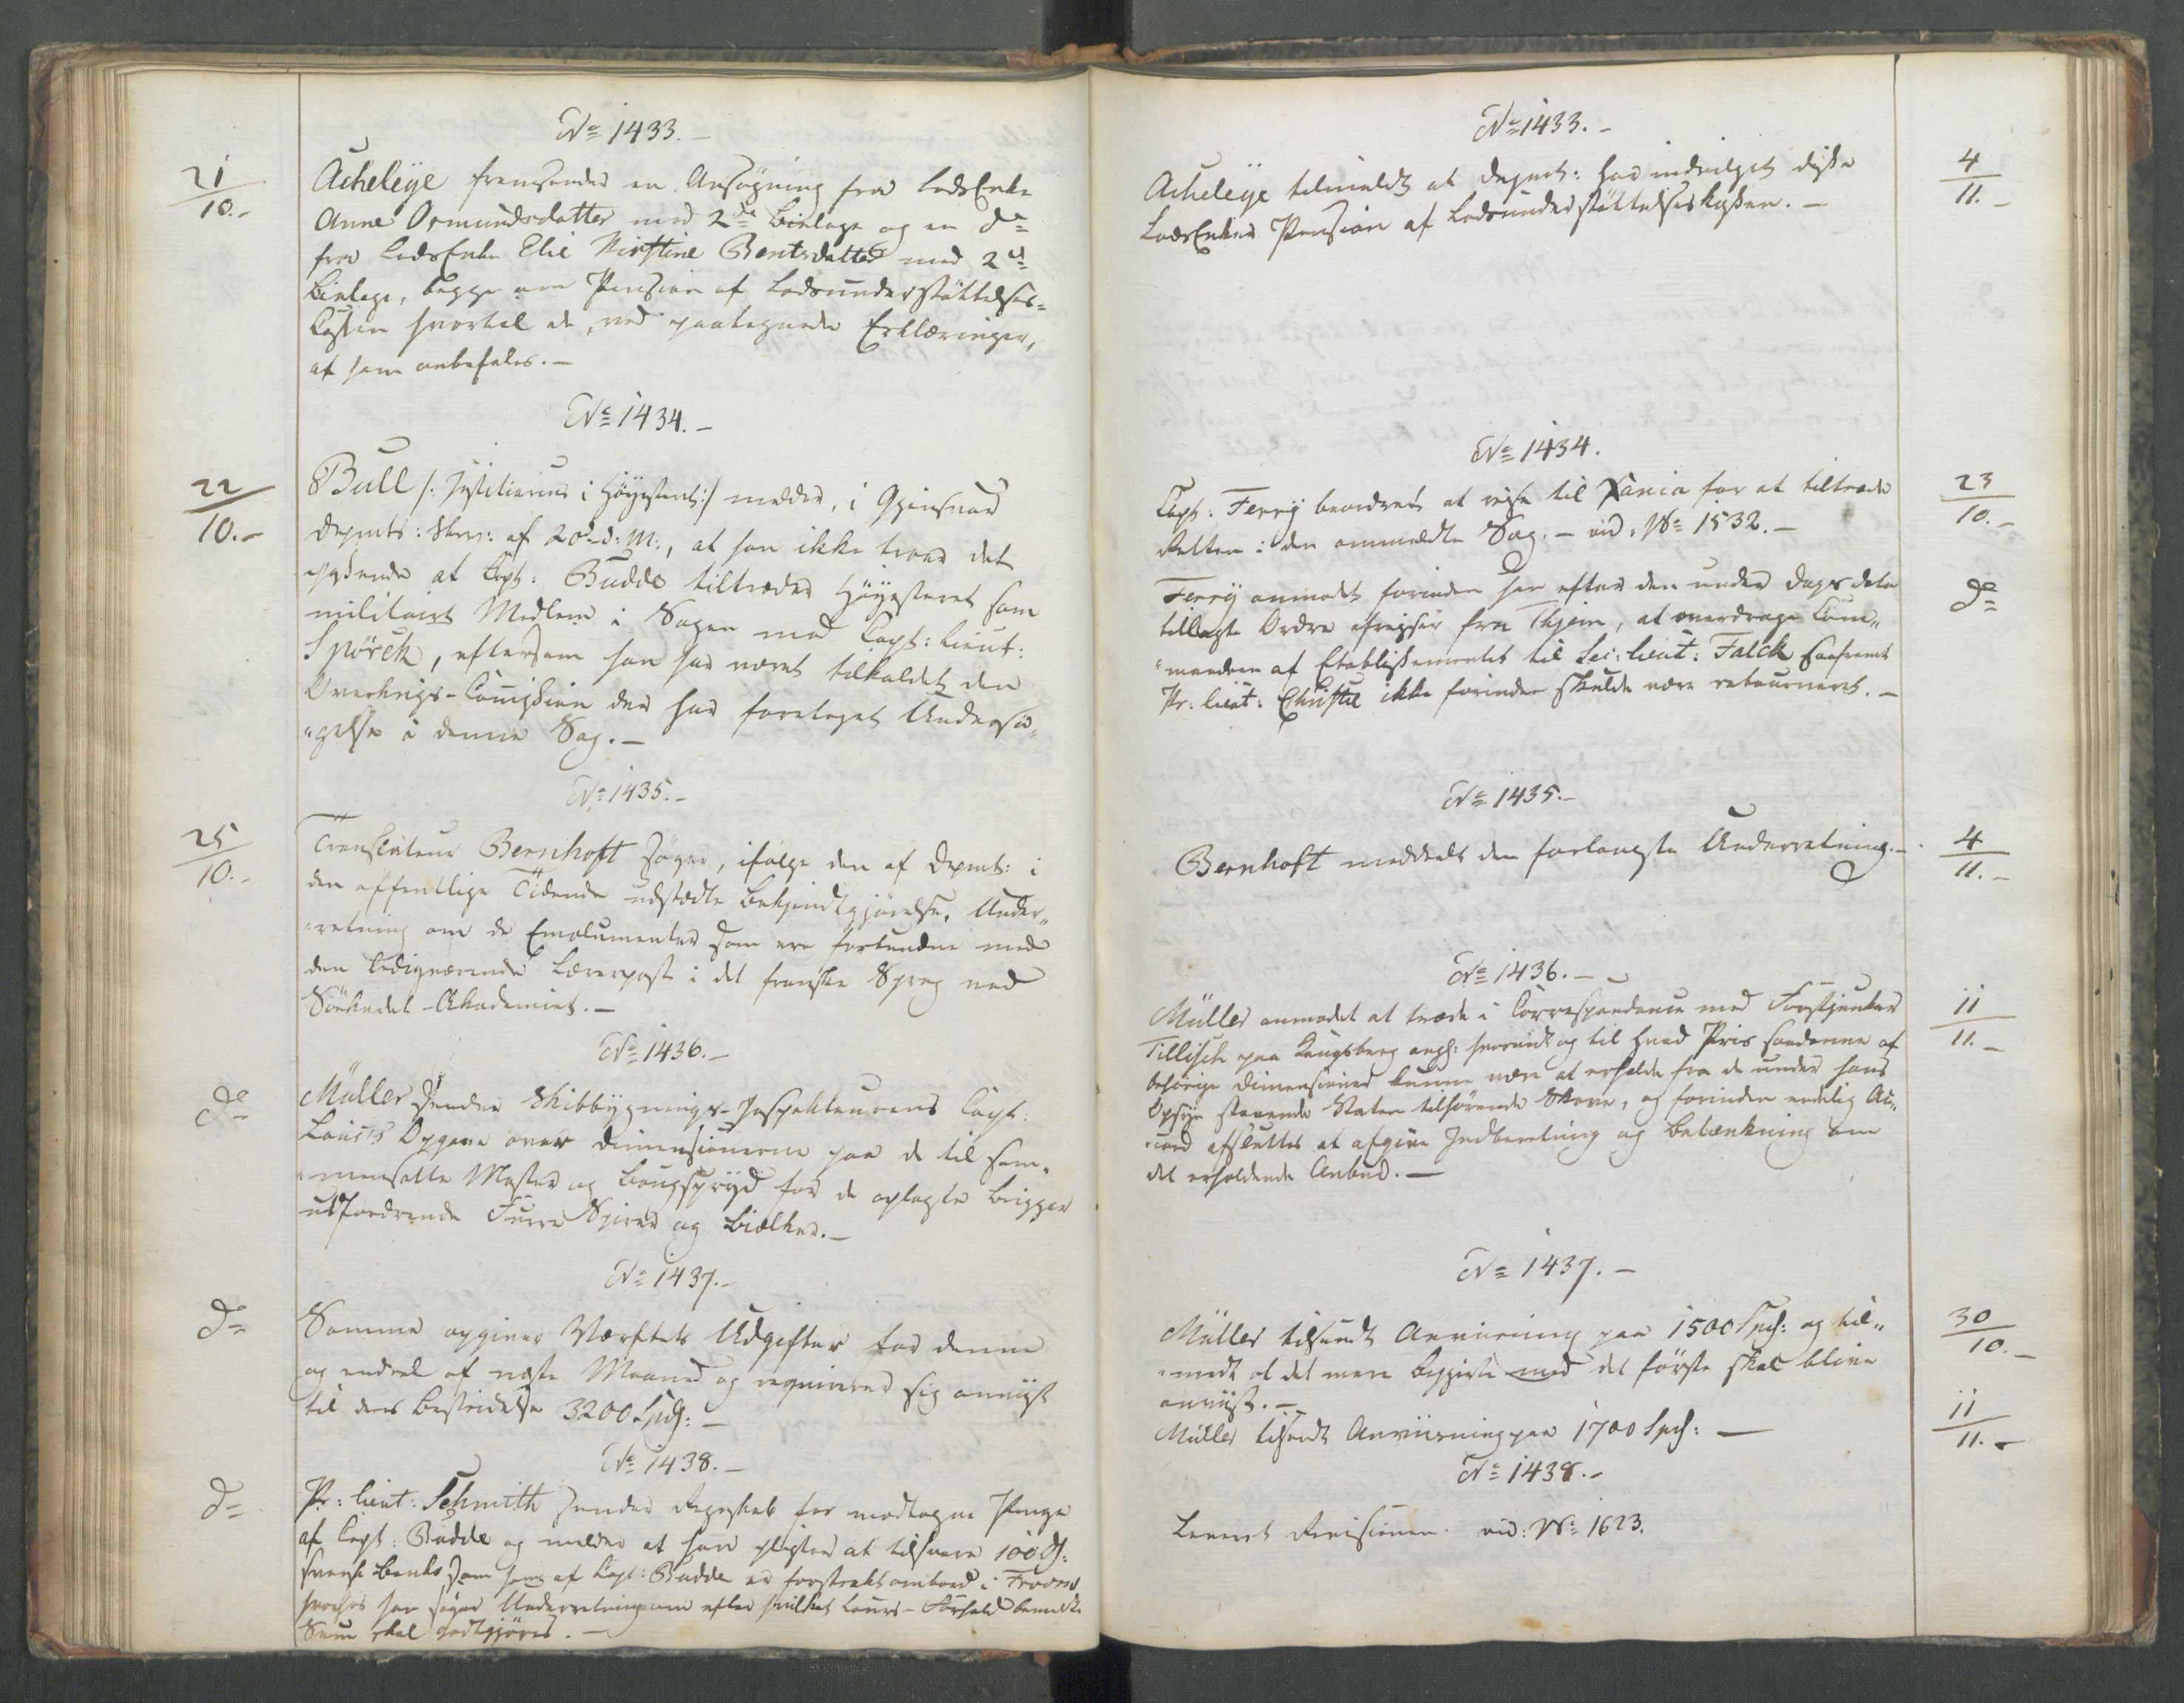 No 1433.-
21/10.-
Acheleÿe fremsender en Ansøgning fra LodsEnke
Anne Osmundsdatter med 2de Bielage og en do
fra LodsEnke Elie Kirstine Bentsdatter med 2de
Bielage, begge om Pension af Lodsunderstøttelses-
Cassen hvortil de, ved paategnede Erklæringer,
af ham anbefales.-
No 1434.-
22/10.-
Bull /: Justitiarius i Høyesteret :/ melder, i Gjensvar
Depmts: Skrv: af 20de d: M:, at han ikke troer det
passende at Capt: Budde tiltræder Høyesteret som
militairt Medlem i Sagen mod Capt: Lieut:
Spörck, eftersom han har været tilkaldet den
Overkrigs-Commission der har foretaget Undersø-
"gelse i denne Sag.-
No 1435.-
25/10.-
Translateur Bernhoft søger, ifølge den af Depmt: i
den offentlige Tidende udstædte Bekjendtgjørelse, Under"
"retning om de Emolumenter som ere forbundne med
den ledigværende Lærerpost i det franske Sprog ved
Søekadet-Akademiet.-
No 1436.-
do
Müller sender Skibbygnings-Inspekteurens Capt:
Opgave over Dimensionerne paa de til sam-
"mensatte Master og Bougspryd for de oplagte Brigger
udfordrende Furre Spirer og Bielker.-
No 1437.-
do
Samme opgiver Værftets Udgifter for denne
og endeel af næste Maaned og reqvirerer sig anviist
til dens Bestridelse 3200 Spd:-
No 1438.-
do
Pr: Lieut: Schmith sender Regnskab for modtagne Penge
af Capt: Budde og melder at han pligter at tilsvare 100 d:
svensk Banko som ham af Capt: Budde er forstrakt ombord i
hvorfor han søger Underretning om efter hvilket Cours-Forhold bemeldte
Sum skal godtgjøres.-
No 1433.-
Acheleÿe tilmeldt at Depmt: har indvilget disse
LodsEnker Pension af Lodsunderstøttelseskassen.-
4/11.-
No 1434.
Capt: Ferrÿ beordret at reise til Xania for at tiltræde
Retten i den ommeldte Sag.- vid: No 1532.-
23/10.-
Ferrÿ anmodet forinden han efter den under Dags dato
tillagte Ordre afreiser fra Thjem, at overdrage Com"
"mandoen af Etablissementet til Sec: Lieut: Falck saafremt
Pr: Lieut: Christie ikke forinden skulde være retourneret.-
do
No 1435.-
Bernhoft meddeelt den forlangte Underretning.-
4/11.-
No 1436.-
Müller anmodet at træde i Correspondance med Forstjunker
Tillisch paa Kongsberg angl: hvorvidt og til hvad Priis saadanne af
behørige Dimensioner kunne være at erholde fra de under hans
Opsÿn staaende Staten tilhørende Skove, og forinden endelig Ac"
"cord afsluttes at afgive Indberetning og Betænkning om
det erholdende Anbud.-
11/11.-
No 1437.-
Müller tilsendt Anviisning paa 1500 Spd: og til"
"meldt at det mere Begjerte med det første skal blive
anviist.-
30/10.-
Müller tilsendt Anviisning paa 1700 Spd:-
11/11.-
No 1438.-
Leveret Revisionen. vid: No 1623.